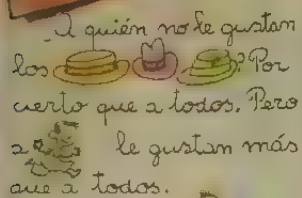 ¿A quién no le gustan
los ? Por
cierto que a todos. Pero
a le gustan más
que a todos.